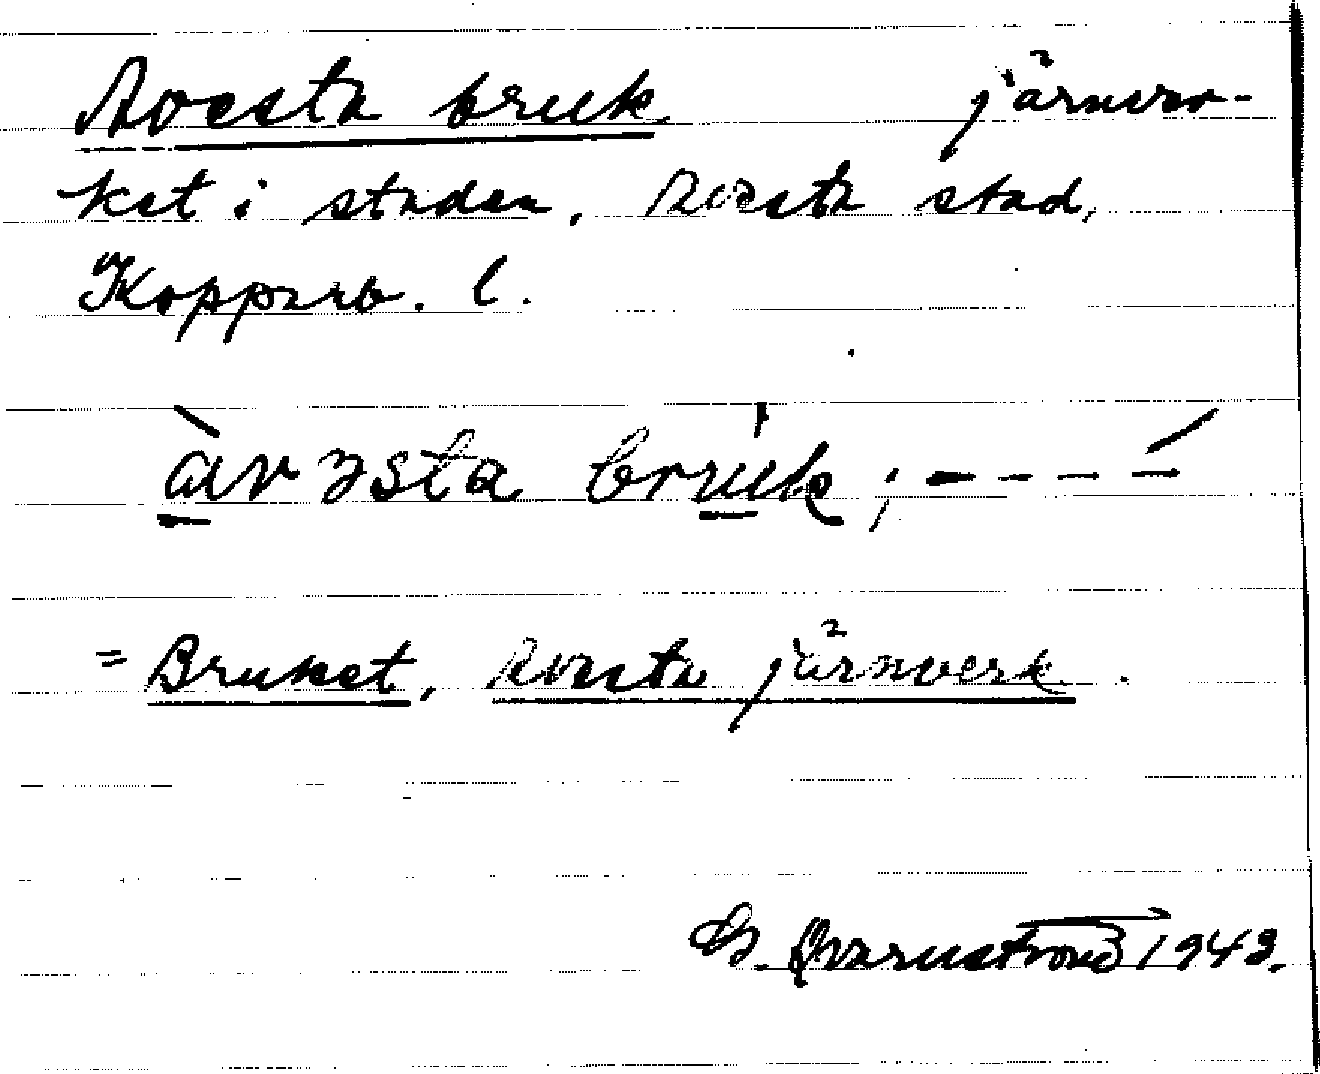 Avesta bruk järnver-
ket i staden, Avesta stad,
Kopparb. l.
àvʒsta bruk ; - - - -́
= Bruket, Avesta järnverk.
G. Qvarnström 1943.